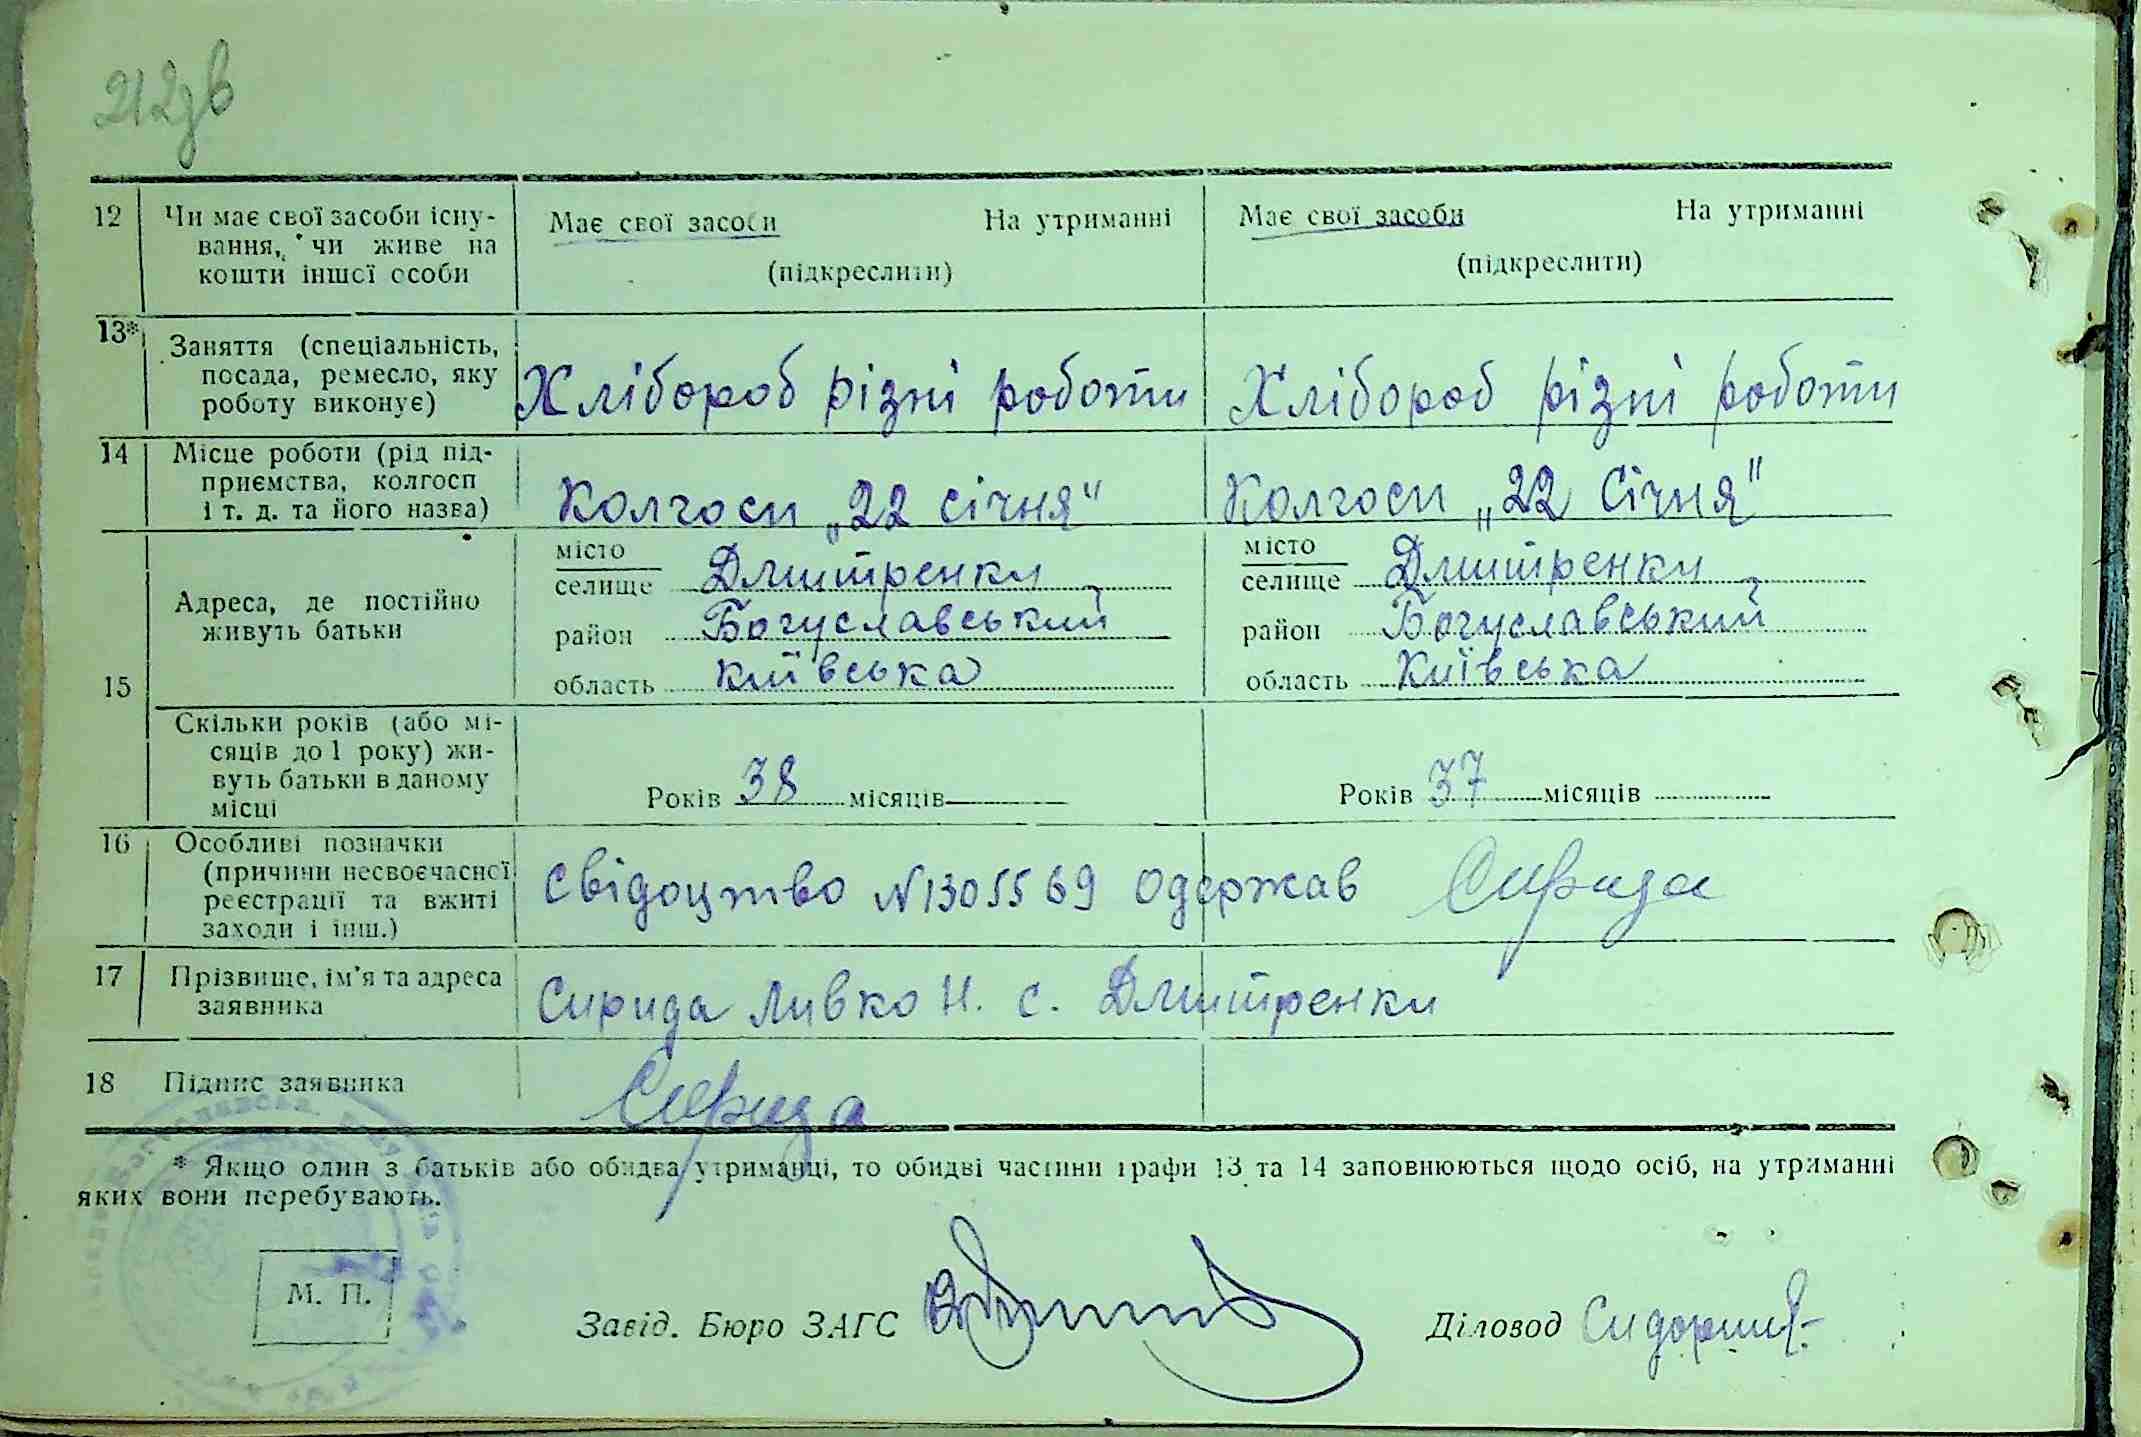 212зв
12 Чи має свої засоби існу-
вання, чи живе на
кошти іншої особи
Має свої засоби На утриманні
(підкреслити)
Має свої засоби На утриманні
(підкреслити)
13* Заняття (спеціальність,
посада, ремесло, яку
роботу виконує)
Хлібороб різні роботи
Хлібороб різні роботи
14 Місце роботи (рід під-
приємства, колгосп
і т. д. та його назва)
Колгосп „22 січня"
Колгосп „22 Січня"
15
Адреса, де постійно
живуть батьки
місто
селище Дмитренки
район Богуславський
область київська
місто
селище Дмитренки
район Богуславський
область Київська
Скільки років (або мі-
сяців до 1 року) жи-
вуть батьки в даному
місці
Років 38 місяців
Років 37 місяців
16 Особливі позначки
(причини несвоєчасної
реєстрації та вжиті
заходи і інш.)
Свідоцтво №1305569 одержав Сирида
17 Прізвище, ім'я та адреса
заявника
Сирида Ливко Н. с. Дмитренки
18 Підпис заявника
Сирида
* Якщо один з батьків або обидва утриманці, то обидві частини графи 13 та 14 заповнюються щодо осіб, на утриманні
яких вони перебувають.
М. П.
Завід. Бюро ЗАГС
Діловод